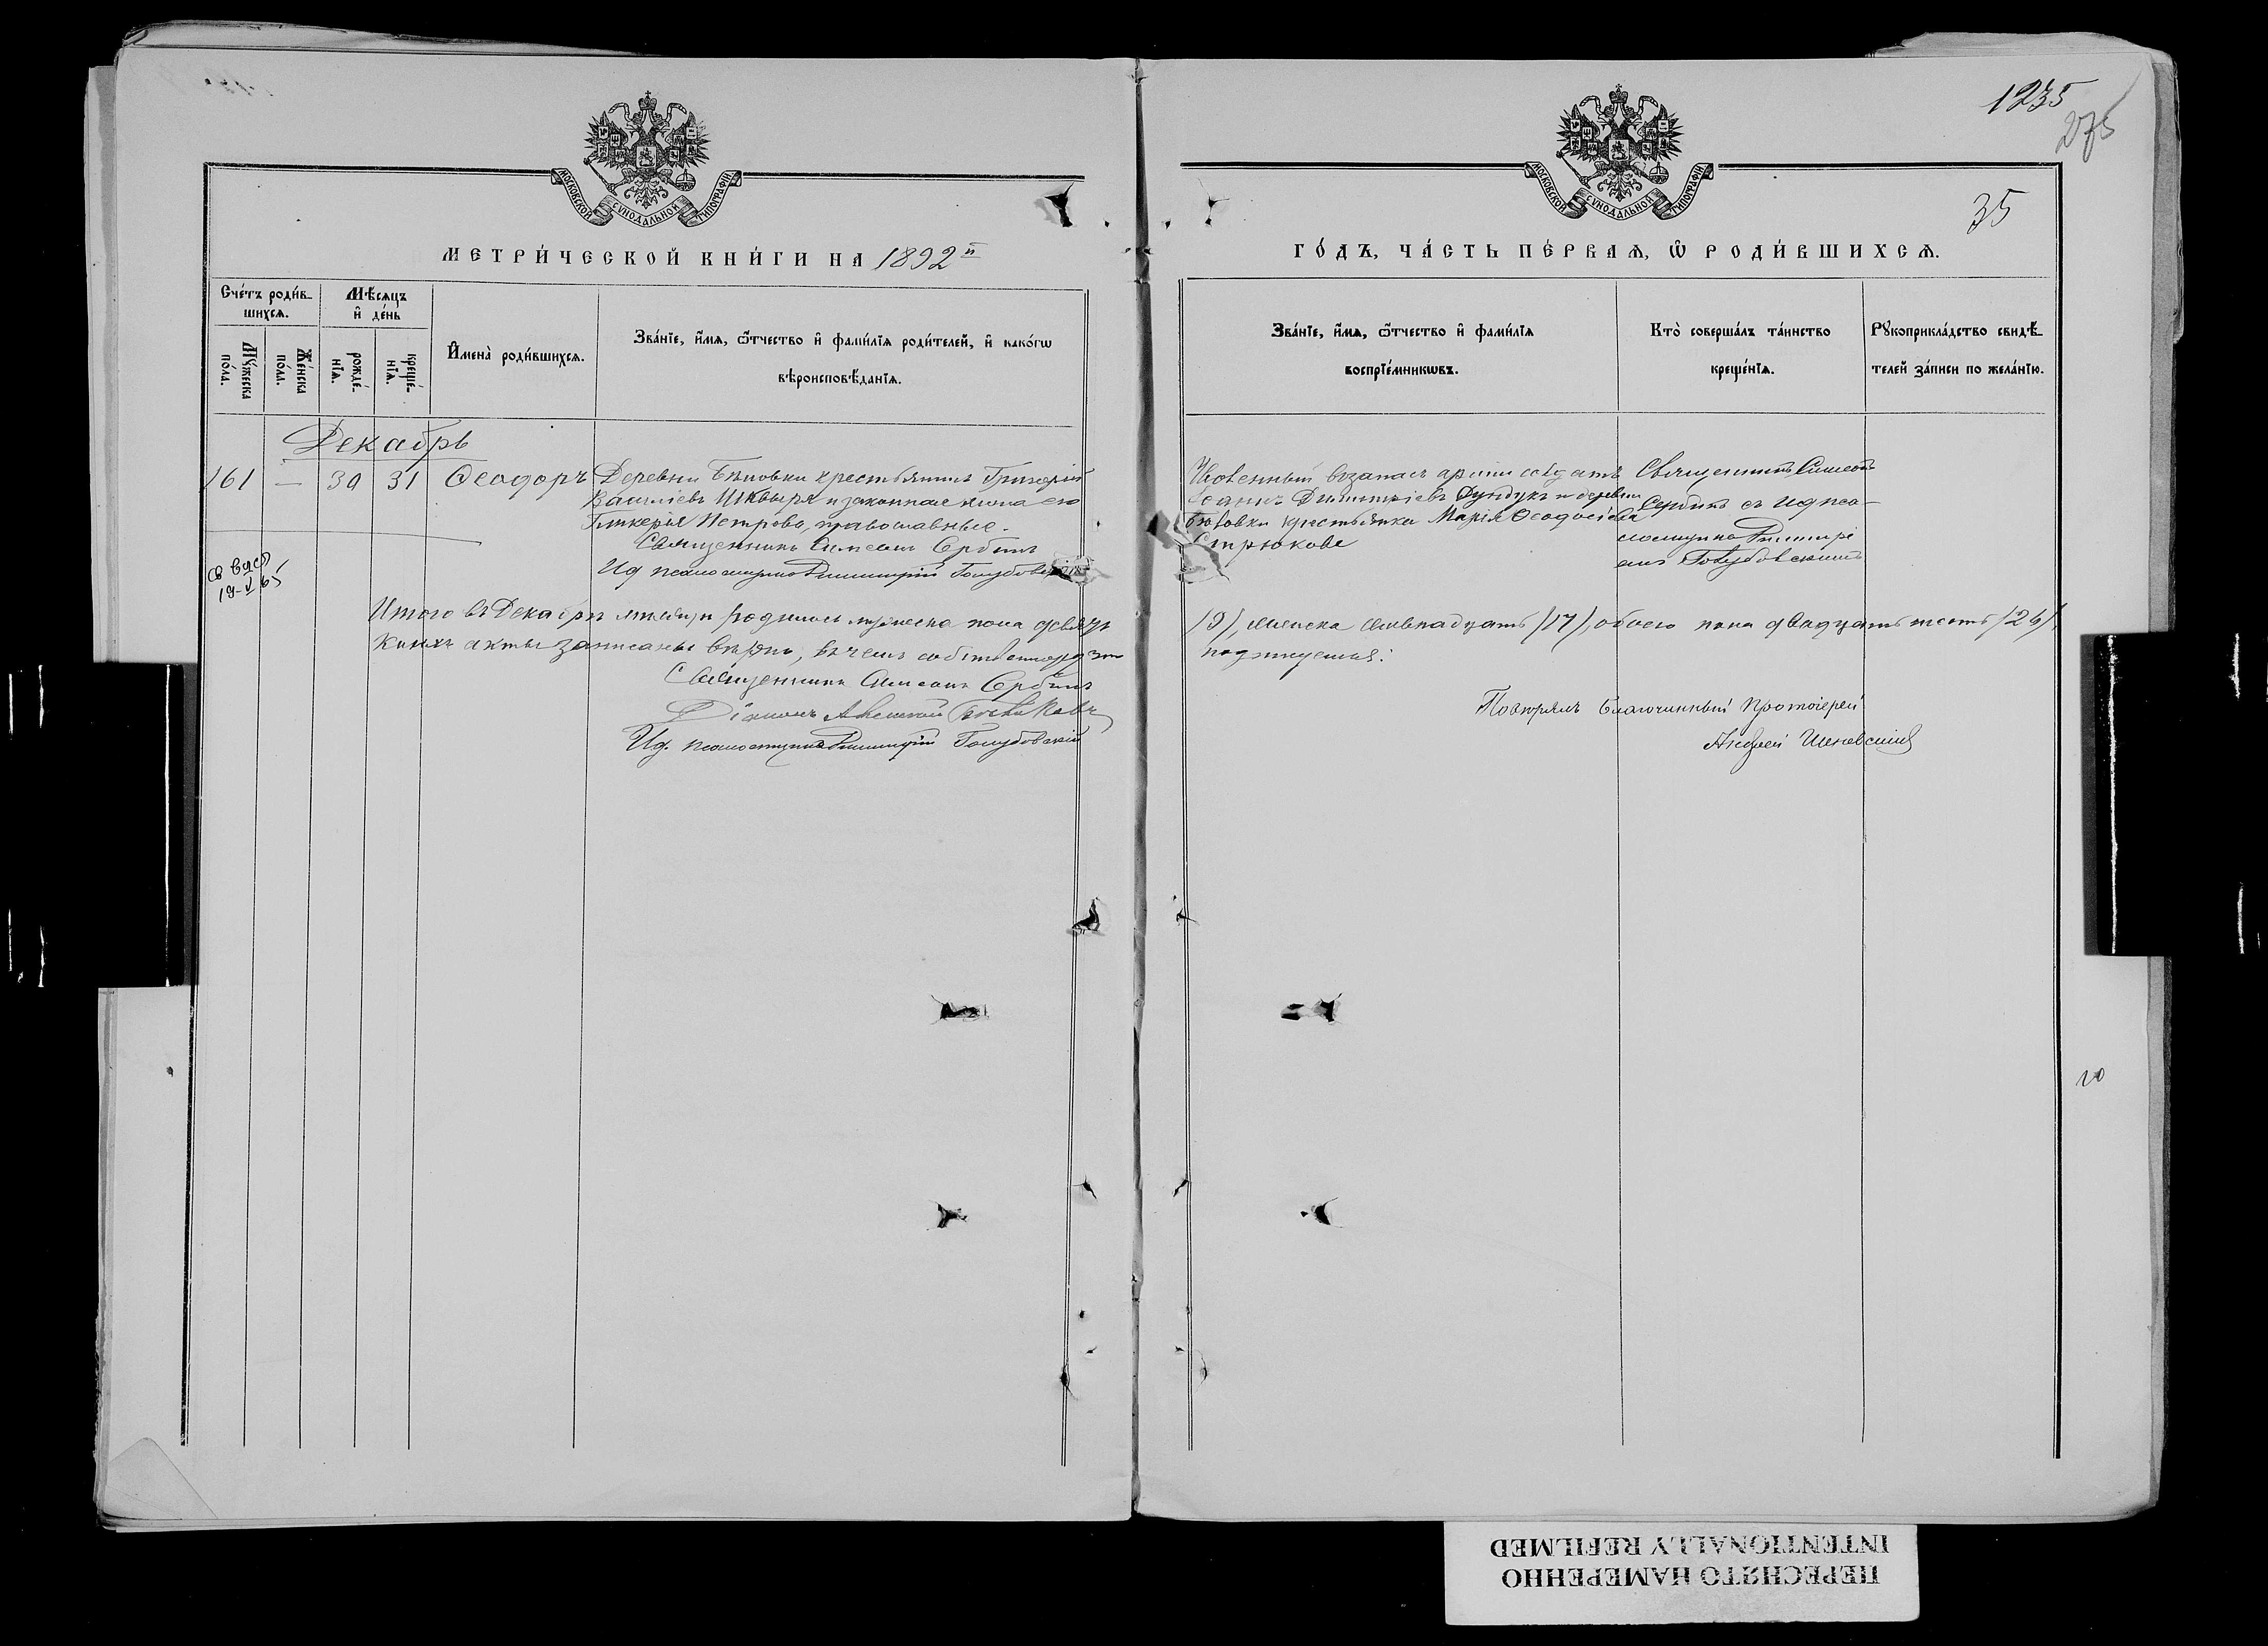 1235
275
35
МОСКОВСКОЙ СѴНОДАЛЬНОЙ ТИПОГРАФІИ
МОСКОВСКОЙ СѴНОДАЛЬНОЙ ТИПОГРАФІИ
МЕТРИ́ЧЕСКОЙ КНИ́ГИ НА 1892 й
ГО́ДЪ, ЧА́СТЬ ПЕ́РВАѦ, Ѽ РОДИ́ВШИХСѦ.
Сче́тъ роди́вшихсѧ.
Му́жеска по́ла.
Же́нска по́ла.
Мѣ́сѧцъ и҆ де́нь
рожде́нїѧ.
креще́нїѧ.
И҆мена̀ роди́вшихсѧ.
Зва́нїе, и҆́мѧ, ѻ҆́тчество и҆ фами́лїѧ роди́телей, и҆ како́гѡ
вѣроисповѣ́данїѧ.
Зва́нїе, и҆́мѧ, ѻ҆́тчество и҆ фами́лїѧ
воспрїе́мникѡвъ.
Кто̀ соверша́лъ та́инство
креще́нїѧ.
Рꙋкоприкла́дство свидѣ́
телей за́писи по жела́нїю.
Декабрь
161 — 30 31 Ѳеодоръ Деревни крестьянинъ Григорій
Василіевъ Шквыря и законная жена его
Гликерія Петрова, православные.
Священникъ Симеонъ Сербинъ
Ид псаломщика Димитрій Голубовскій
Уволенный въ запасъ арміи солдатъ
Іоаннъ Димитріевъ Дундукъ и деревни
крестьянка Марія Ѳеодосіева
Стрюкова
Священникъ Симеонъ
Сербинъ съ ид пса-
ломщика Димитрі
емъ Голубовскимъ
19-V 65
Итого въ Декабрѣ мѣсяцѣ родилось мужеска пола девять /9/, женска семьнадцать /17/, обоего пола двадцать шесть /26/,
коихъ акты записаны вѣрно, въ чемъ подписуемся:
Священникъ Симеонъ Сербинъ
Діаконъ Алексѣй
Ид. псаломщика Димитрій Голубовскій
Повѣрялъ Благочинный Протоіерей
Андрей
10
ПЕРЕСНЯТО НАМЕРЕННО
INTENTIONALLY REFILMED